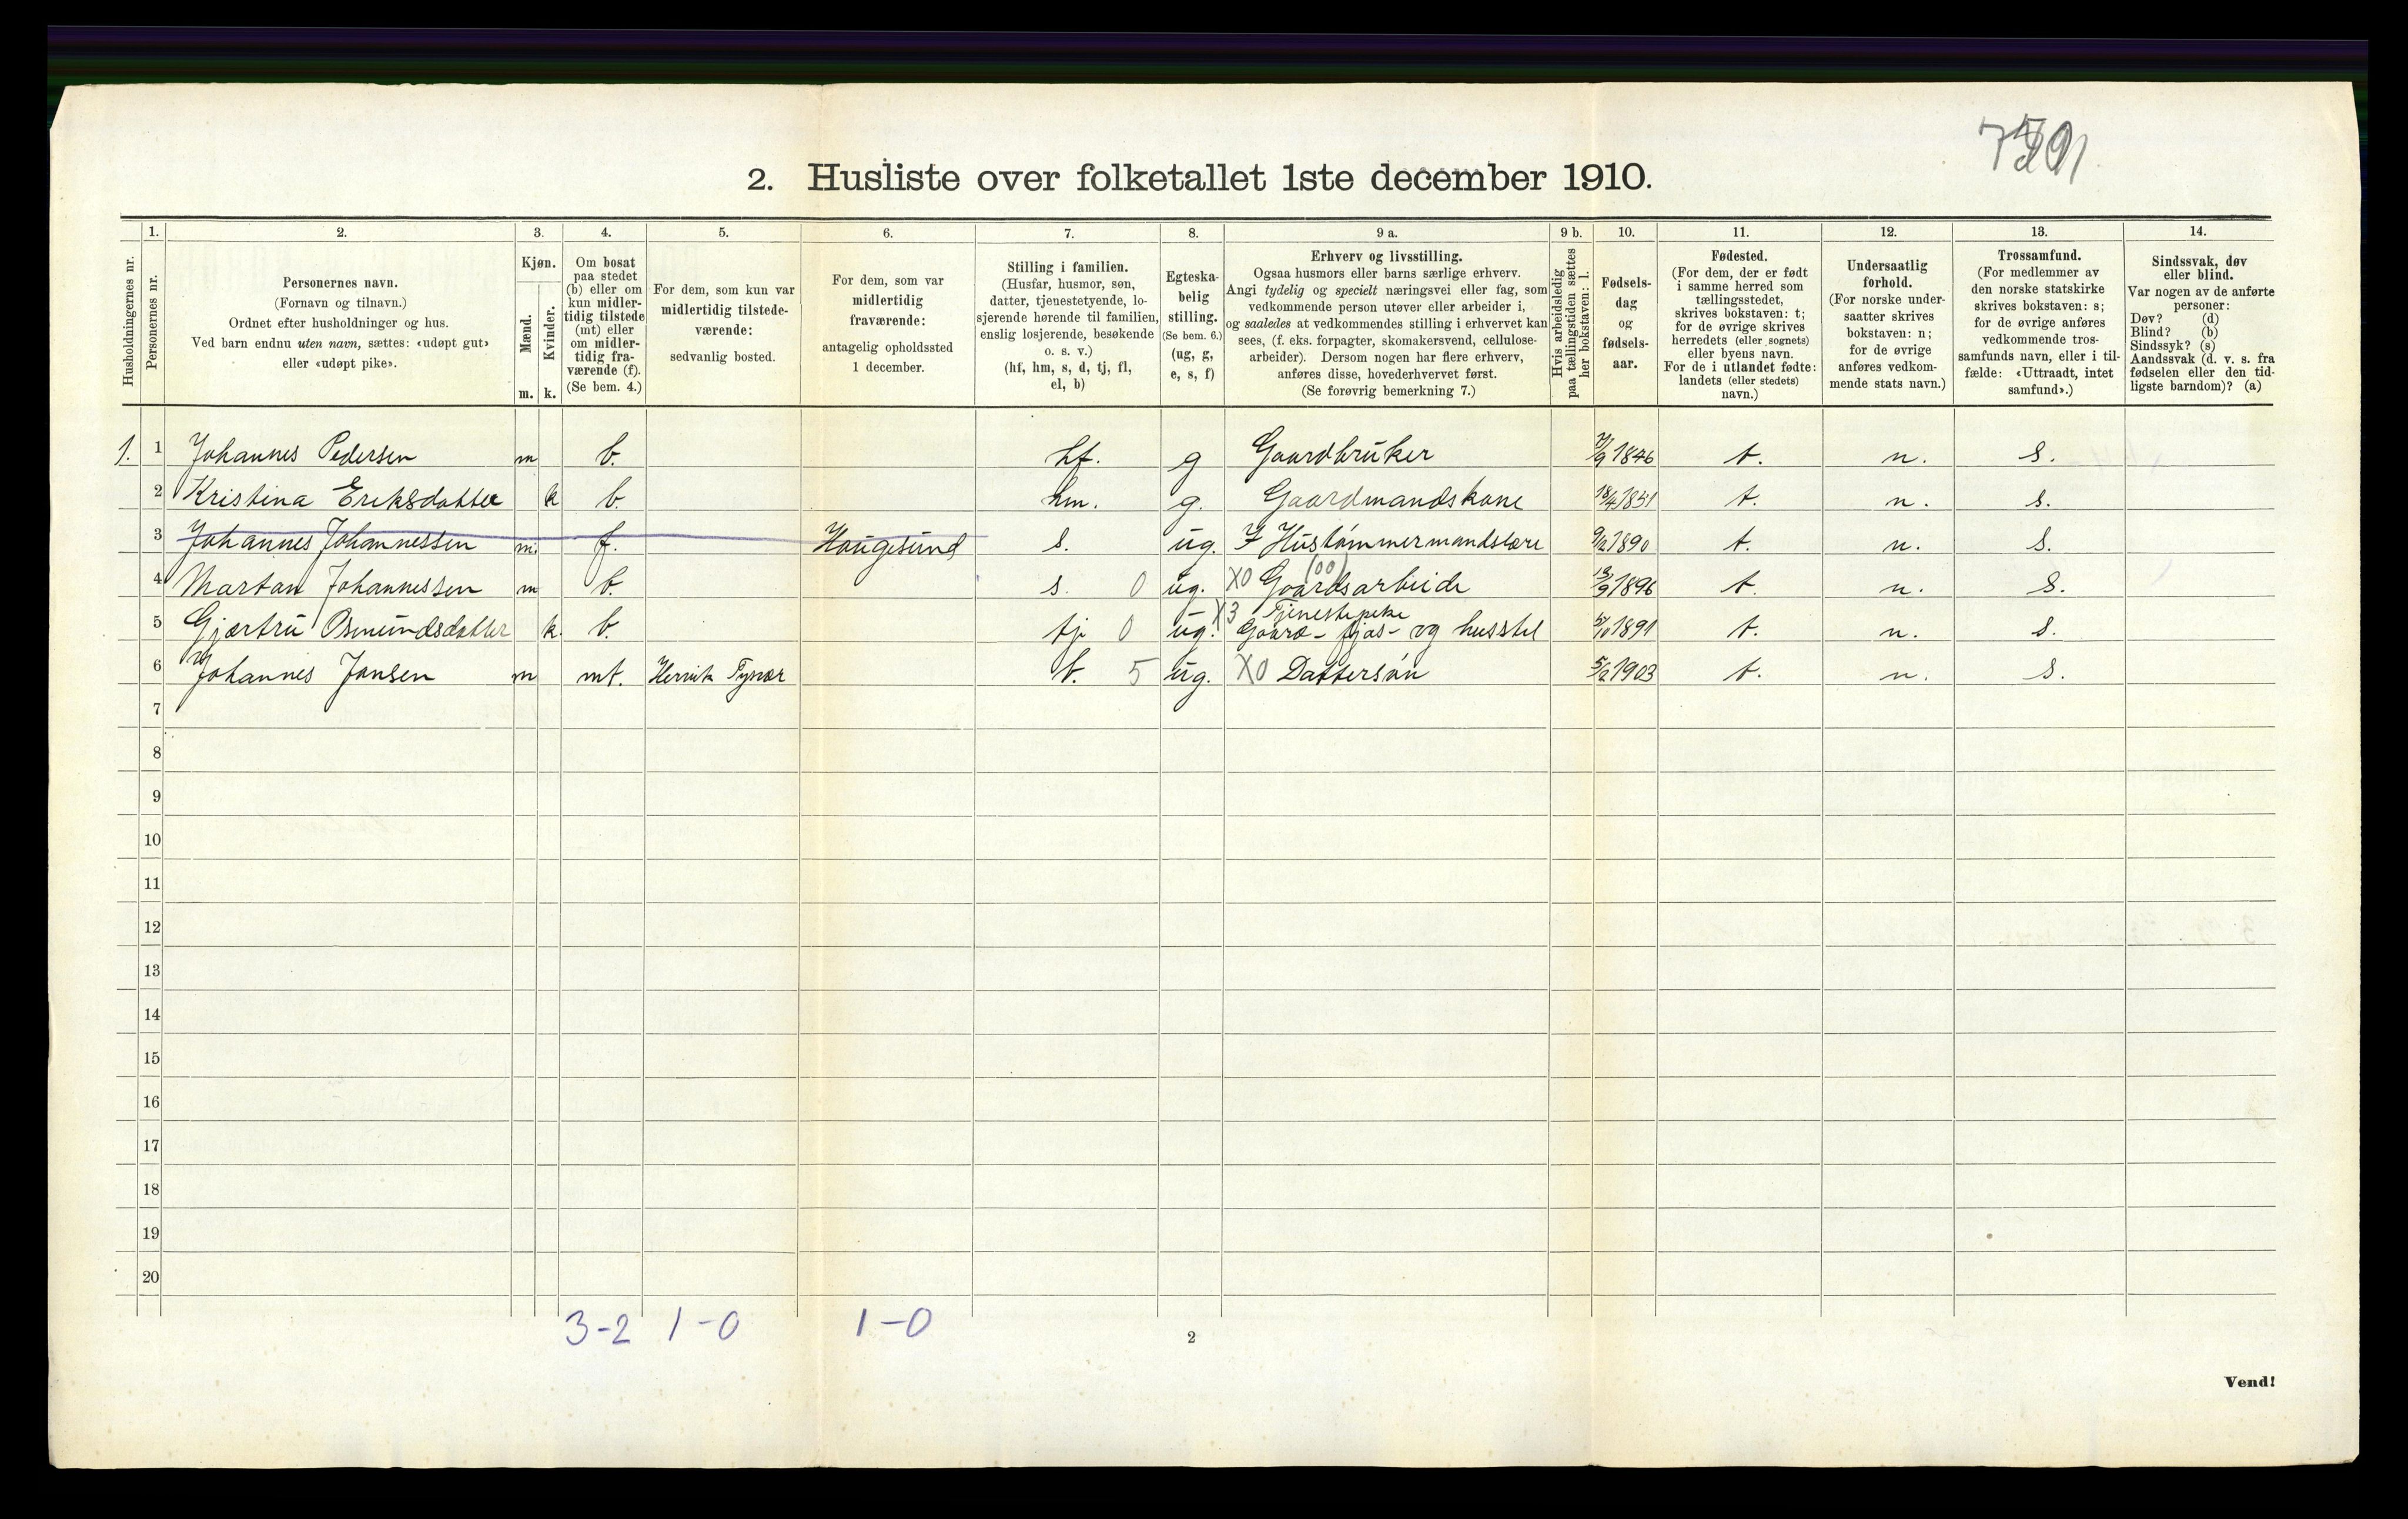 2. Husliste over folketallet 1ste december 1910.
1. 2. 3. 4. 5. 6. 7. 8. 9 a. 9 b. 10. 11. 12. 13. 14.
Husholdningernes nr.
Personernes nr.
Personernes navn.
(Fornavn og tilnavn.)
Ordnet efter husholdninger og hus.
Ved barn endnu uten navn, sættes: «udøpt gut»
eller «udøpt pike».
Kjøn.
Mænd.
Kvinder.
m. k.
Om bosat
paa stedet
(b) eller om
kun midler-
tidig tilstede
(mt) eller
om midler-
tidig fra-
værende (f).
(Se bem. 4.)
For dem, som kun var
midlertidig tilstede-
værende:
sedvanlig bosted.
For dem, som var
midlertidig
fraværende:
antagelig opholdssted
1 december.
Stilling i familien.
(Husfar, husmor, søn,
datter, tjenestetyende, lo-
sjerende hørende til familien,
enslig losjerende, besøkende
o. s. v.)
(hf, hm, s, d, tj, fl,
el, b)
Egteska-
belig
stilling.
(Se bem. 6.)
(ug, g,
e, s, f)
Erhverv og livsstilling.
Ogsaa husmors eller barns særlige erhverv.
Angi tydelig og specielt næringsvei eller fag, som
vedkommende person utøver eller arbeider i,
og saaledes at vedkommendes stilling i erhvervet kan
sees, (f. eks. forpagter, skomakersvend, cellulose-
arbeider). Dersom nogen har flere erhverv,
anføres disse, hovederhvervet først.
(Se forøvrig bemerkning 7.)
Hvis arbeidsledig
paa tællingstiden sættes
her bokstaven: l.
Fødsels-
dag
og
fødsels-
aar.
Fødested.
(For dem, der er født
i samme herred som
tællingsstedet,
skrives bokstaven: t;
for de øvrige skrives
herredets (eller sognets)
eller byens navn.
For de i utlandet fødte:
landets (eller stedets)
navn.)
Undersaatlig
forhold.
(For norske under-
saatter skrives
bokstaven: n;
for de øvrige
anføres vedkom-
mende stats navn.)
Trossamfund.
(For medlemmer av
den norske statskirke
skrives bokstaven: s;
for de øvrige anføres
vedkommende tros-
samfunds navn, eller i til-
fælde: «Uttraadt, intet
samfund».)
Sindssvak, døv
eller blind.
Var nogen av de anførte
personer:
Døv? (d)
Blind? (b)
Sindssyk? (s)
Aandssvak (d. v. s. fra
fødselen eller den tid-
ligste barndom)? (a)
1. 1 Johannes Pedersen m b. hf. g Gaardbruker 7/9 1846 t. n. s.
2 Kristina Eriksdatter k b. hm. g. Gaardmandskone 18/4 1851 t. n. s.
3 Johannes Johannessen m. f. Hougesund s. ug. Hustømmermandslære 9/2 1890 t. n. s.
4 Martan Johannessen m b. s. 0 ug. X0 Goardsarbeide (00) 1896 t. n. s.
X3 Tjenestepike
5 Gjærtru Osmundsdatter k. b. tj 0 ug. Gaard- fjøs- og husstel 1891 t. n. s.
6 Johannes Jonsen m mt. Hervik Tysvær b. 5 ug. X0 Dattersøn 5/2 1903 t. n. s.
7
8
9
10
11
12
13
14
15
16
17
18
19
20
3-2 1-0 1-0
2
Vend!